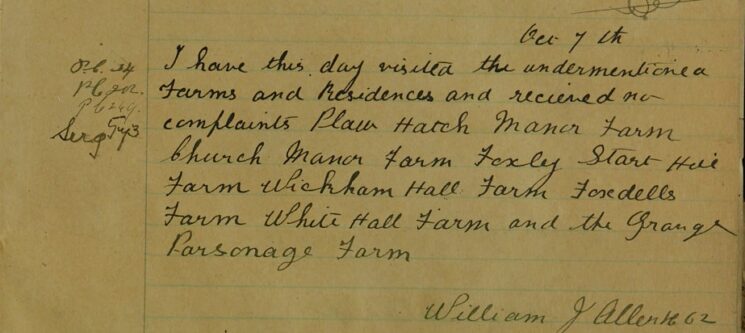 Oct 7th
I have this day visited the undermentioned
P.C. 24
Farms and Residences and recieved no
P.C 202.
complaints Plaw Hatch Manor Farm
P.C 249.
Serg
Church Manor Farm Foxley Start Hill
Farm Wickham Hall Farm Foxdells
Farm White Hall Farm and the Grange
Parsonage Farm
William J Allen